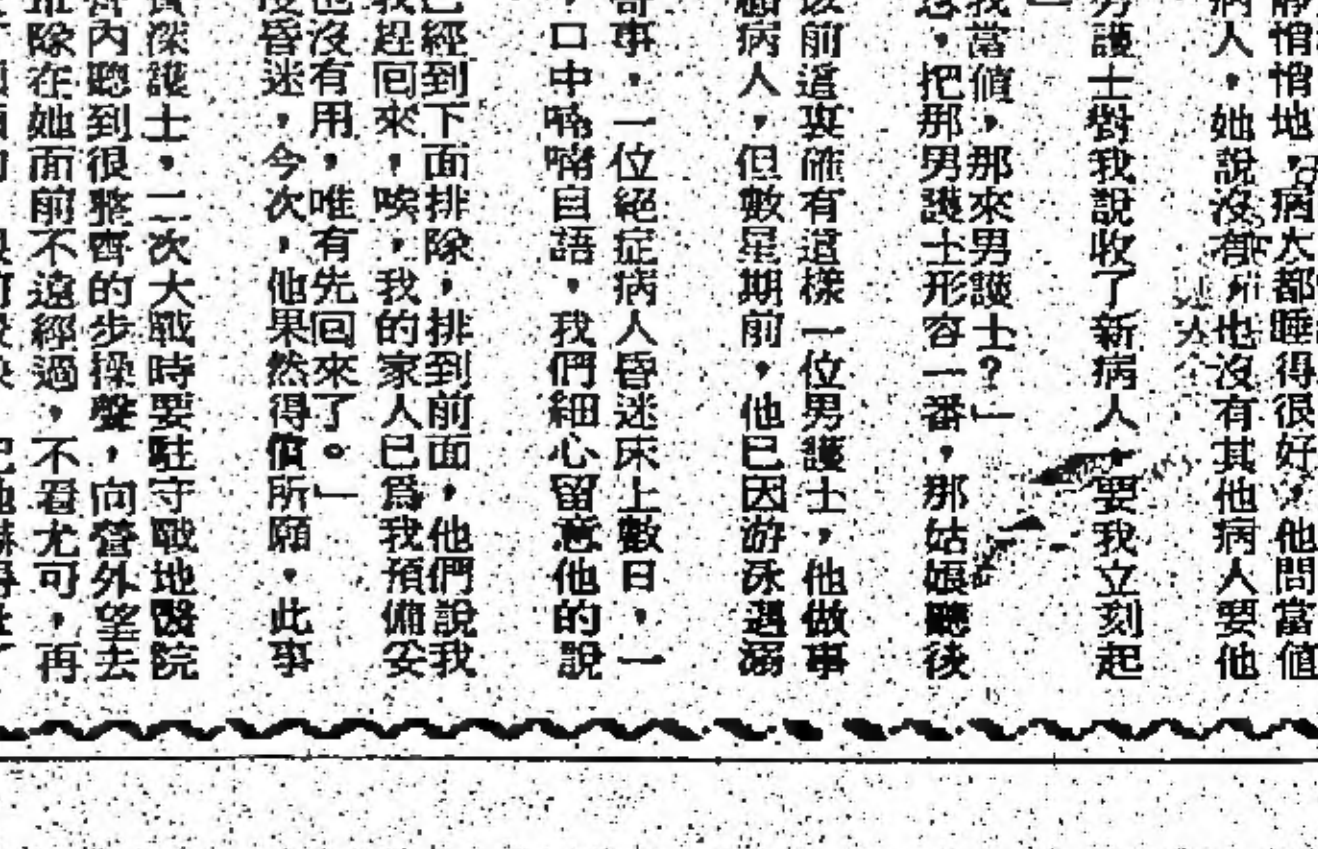 靜悄悄地,病人都睡得很好,他問當值
病人,她說沒有,也沒有其他病人要他
男護士對我說收了新病人,要我立刻起
我當值,那來男護士?」
,把那男護士形容一番,那姑娘聽後
以前這裏確有這樣一位男護士,他做事
顧病人,但數星期前,他已因游泳遇溺
奇事,一位絕症病人昏迷床上數日,一
,口中喃喃自語,我們細心留意他的說
已經到下面排除,排到前面,他們說我
我赶囘來,唉,我的家人已爲我預備妥
也沒有用,唯有先囘來了。」
昏迷,今次,他果然得償所願,此事
資深護士,二次大戰時要駐守戰地醫院
營內聽到很整齊的步操聲,向營外望去
除在她面前不遠經過,不看尤可,再